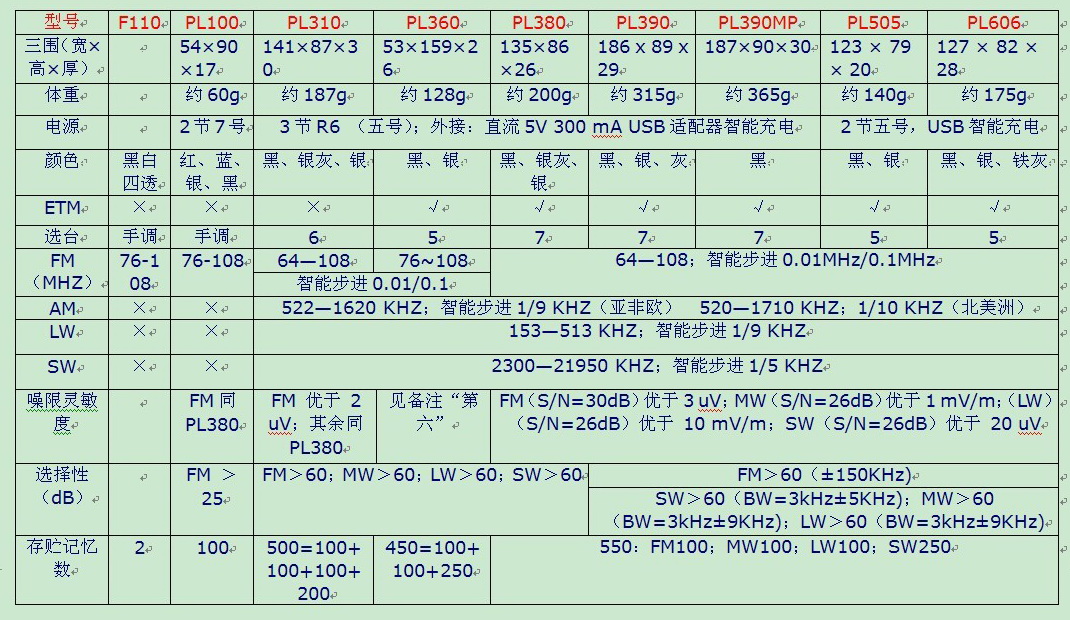 型号 F110 PL100 PL310 PL360 PL380 PL390 PL390MP PL505 PL606
三围（宽× 54×90 141×87×3 53×159×2 135×86 186 x 89 x 187×90×30 123 × 79 127 × 82 ×
高×厚） ×17 0 6 ×26 29 × 20 28
体重 约 60g 约 187g 约 128g 约 200g 约 315g 约 365g 约 140g 约 175g
电源 2 节 7 号 3 节 R6 （五号）；外接：直流 5V 300 mA USB 适配器智能充电 2 节五号，USB 智能充电
颜色 黑白 红、蓝、 黑、银灰、银 黑、银 黑、银灰、 黑、银、灰 黑 黑、银 黑、银、铁灰
四透 银、黑 银
ETM × × × √ √ √ √ √ √
选台 手调 手调 6 5 7 7 7 5 5
FM 76-1 76-108 64—108 76~108 64—108；智能步进 0.01MHz/0.1MHz
（MHZ） 08 智能步进 0.01/0.1
AM × × 522—1620 KHZ；智能步进 1/9 KHZ（亚非欧） 520—1710 KHZ；1/10 KHZ（北美洲）
LW × × 153—513 KHZ；智能步进 1/9 KHZ
SW × × 2300—21950 KHZ；智能步进 1/5 KHZ
噪限灵敏 FM 同 FM 优于 2 见备注“第 FM（S/N=30dB）优于 3 uV；MW（S/N=26dB）优于 1 mV/m；（LW）
度 PL380 uV；其余同 六” （S/N=26dB）优于 10 mV/m；SW（S/N=26dB）优于 20 uV
PL380
选择性 FM ＞ FM＞60；MW＞60；LW＞60；SW＞60 FM＞60（±150KHz）
（dB） 25 SW＞60（BW=3kHz±5KHz)；MW＞60
（BW=3kHz±9KHz)；LW＞60（BW=3kHz±9KHz)
存贮记忆 2 100 500=100+ 450=100+ 550：FM100；MW100；LW100；SW250
数 100+100+ 100+250
200